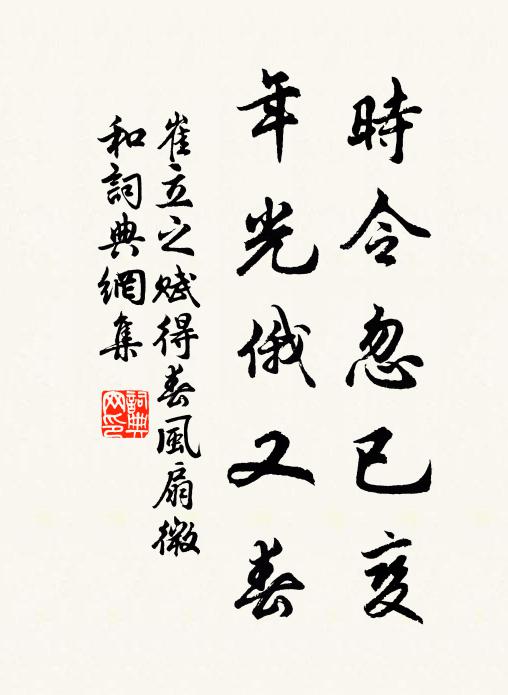 時令忽已变
年光俄又春
崔立之赋得春風扇微
和詞典網集
詞典
网印